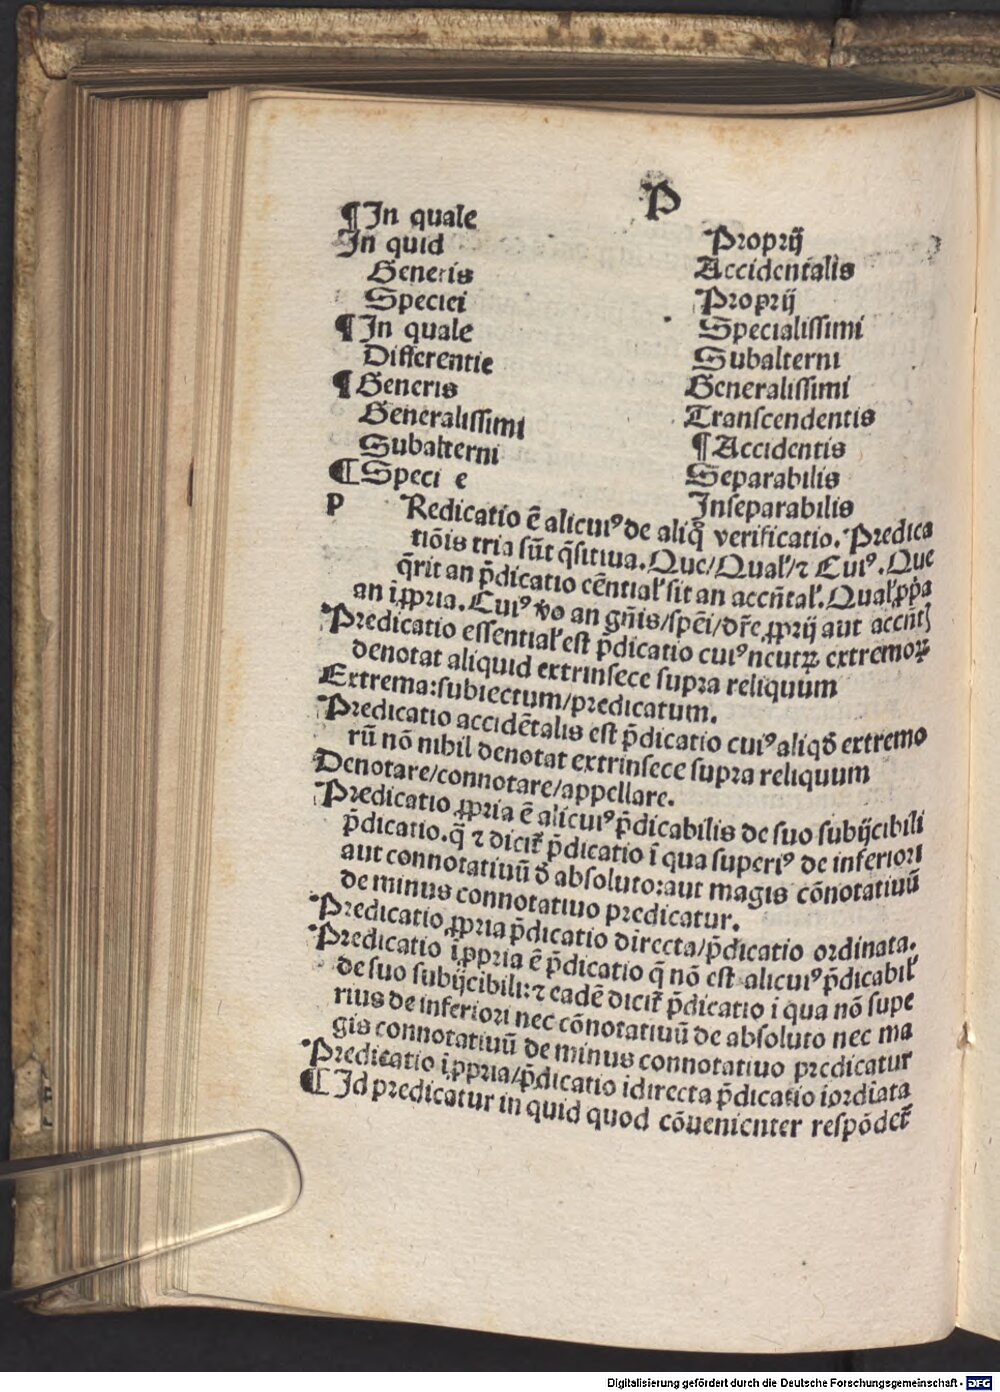 P
¶In quale
In quid
Generis
Speciei
¶In quale
Differentie
¶Generis
Generalissimi
Subalterni
¶Speci e
Proprij
Accidentalis
Proprij
Specialissimi
Subalterni
Generalissimi
Transcendentis
¶Accidentis
Separabilis
Inseparabilis
PRedicatio ē alicuiꝰ de aliq̄ verificatio. Predica
tiōis tria sūt q̄sitiua. Que/Qualꝭ/⁊ Cuiꝰ. Que
q̄rit an p̄dicatio cēntialꝭ sit an accn̄talꝭ. Qualꝭ ꝓp̄a
an īꝓpria. Cuiꝰ ꝟo an gn̄is/spēi/dr̄e ꝓprij aut accn̄tꝭ
Predicatio essentialꝭ est p̄dicatio cuiꝰ neutꝝ extremoꝝ
denotat aliquid extrinsece supra reliquum
Extrema: subiectum/predicatum.
Predicatio accidētalis est p̄dicatio cuiꝰ aliqđ extremo
rū nō nihil denotat extrinsece supra reliquum
Denotare/connotare/appellare.
Predicatio ꝓpria ē alicuiꝰ p̄dicabilis de suo subijcibili
p̄dicatio. q̄ ⁊ dicit᷑ p̄dicatio ī qua superiꝰ de inferiori
aut connotatiuū đ absoluto: aut magis cōnotatiuū
de minus connotatiuo predicatur.
Predicatio ꝓpria p̄dicatio directa/p̄dicatio ordinata.
Predicatio īꝓpria ē p̄dicatio q̄ nō est alicuiꝰ p̄dicabilꝭ
de suo subijcibili: ⁊ eadē dicit᷑ p̄dicatio i qua nō supe
rius de inferiori nec cōnotatiuū de absoluto nec ma
gis connotatiuū de minus connotatiuo predicatur
Predicatio īꝓpria/p̄dicatio idirecta p̄dicatio iordīata
¶Id predicatur in quid quod cōuenienter respōdet᷑
Digitalisierung gefördert durch die Deutsche Forschungsgemeinschaft - DFG